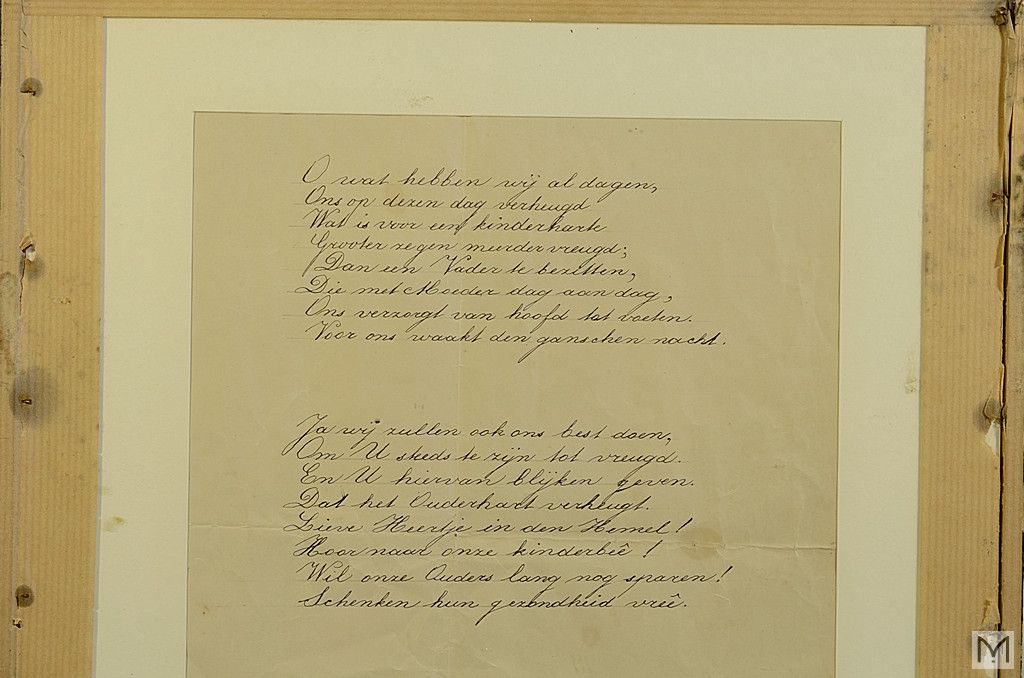 O wat hebben wij al dagen,
Ons op dezen dag verheugd
Wat is voor een kinderharte
Grooter zegen meerder vreugd;
Dan een Vader te bezitten,
Die met Moeder dag aan dag,
Ons verzorgt van hoofd tot voeten.
Voor ons waakt den ganschen nacht.
Ja wij zullen ook ons best doen,
Om U steds te zijn tot vreugd.
En U hiervan blijken geven.
Dat het Ouderhart verheugt.
Lieve Heertje in den Hemel!
Hoor naar onze kinderbeê!
Wil onze Ouders lang nog sparen!
Schenken hun gezondheid vreê.
M